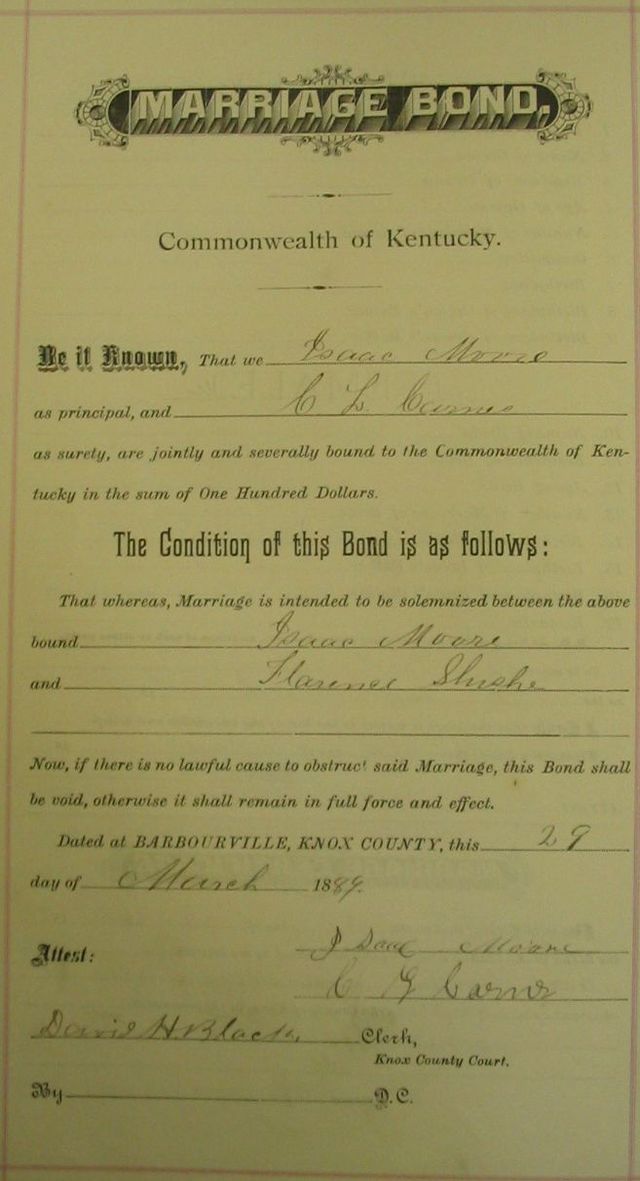 MARRIAGE BOND.
Commonwealth of Kentucky.
Be it Known, That we Isaac Moore
as principal, and C L Carnes
as surety, are jointly and severally bound to the Commonwealth of Ken-
tucky in the sum of One Hundred Dollars.
The Condition of this Bond is as follows:
That whereas, Marriage is intended to be solemnized between the above
bound Isaac Moore
and Florence
Now, if there is no lawful cause to obstruct said Marriage, this Bond shall
be void, otherwise it shall remain in full force and effect.
Dated at BARBOURVILLE, KNOX COUNTY, this 29
day of March 1889.
Attest: Isaac Moore
C
David H. Black, Clerk,
Knox County Court.
By D.C.